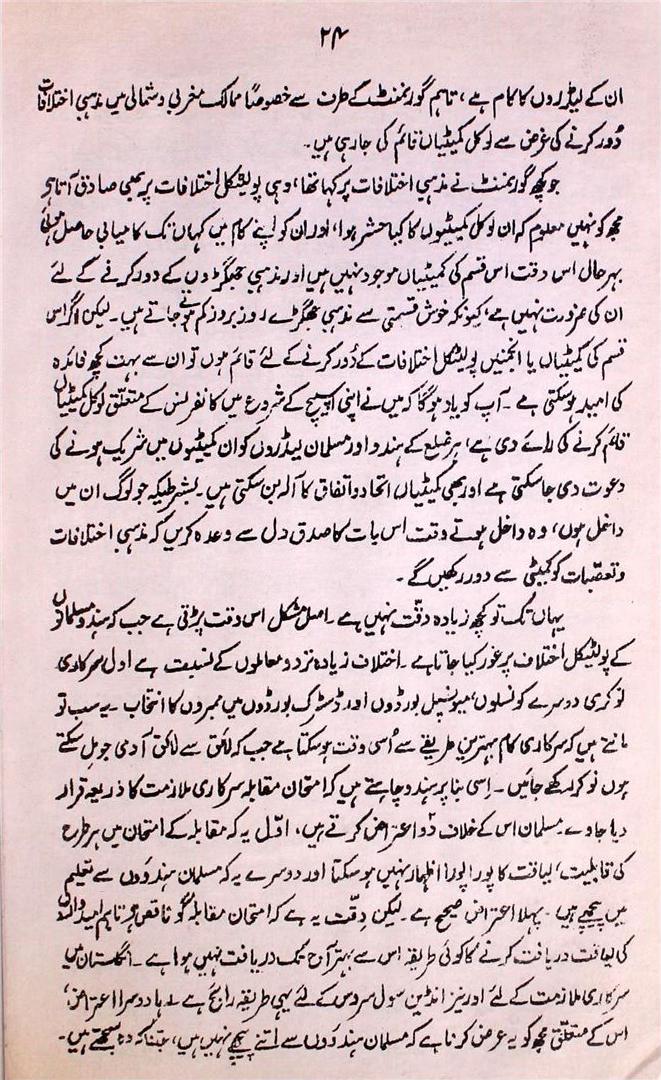 ۲۴
ان کے لیڈروں کا کام ہے، تاہم گورنمنٹ کے طرف سے خصوصاً ممالک مغربی و شمالی میں مذہبی اختلافات
دُور کرنے کی غرض سے لوکل کمیٹیاں قائم کی جا رہی ہیں۔
جو کچھ گورنمنٹ نے مذہبی اختلافات پر کہا تھا، وہی پولیٹیکل اختلافات پر بھی صادق آتا ہے
مجھ کو نہیں معلوم کہ ان لوکل کمیٹیوں کا کیا حشر ہوا، اور ان کو اپنے کام میں کہاں تک کامیابی حاصل ہوئی
بہر حال اس وقت اس قسم کی کمیٹیاں موجود نہیں ہیں اور مذہبی جھگڑوں کے دور کرنے کے لئے
ان کی ضرورت نہیں ہے، کیونکہ خوش قسمتی سے مذہبی جھگڑے روز بروز کم ہوتے جاتے ہیں۔ لیکن اگر اس
قسم کی کمیٹیاں یا انجمنیں پولیٹکل اختلافات کے دُور کرنے کے لئے قائم ہوں تو ان سے بہت کچھ فائدہ
کی امید ہو سکتی ہے۔ آپ کو یاد ہوگا کہ میں نے اپنی اسپیچ کے شروع میں کانفرنس کے متعلق لوکل کمیٹیاں
قائم کرنے کی رائے دی ہے، ہر ضلع کے ہندو اور مسلمان لیڈروں کو ان کمیٹیوں میں شریک ہونے کی
دعوت دی جا سکتی ہے اور یہی کمیٹیاں اتحاد و اتفاق کا آلہ بن سکتی ہیں۔ بشرطیکہ جو لوگ ان میں
داخل ہوں، وہ داخل ہوتے وقت اس بات کا صدق دل سے وعدہ کریں کہ مذہبی اختلافات
و تعصّبات کو کمیٹی سے دور رکھیں گے۔
یہاں تک تو کچھ زیادہ دقّت نہیں ہے۔ اصل مشکل اس وقت پڑتی ہے جب کہ ہندو مسلمانوں
کے پولٹیکل اختلاف پر غور کیا جاتا ہے۔ اختلاف زیادہ تر دو معاملوں کے نسبت ہے اول سرکاری
نوکری دوسرے کونسلوں، میونسپل بورڈوں اور ڈسٹرکٹ بورڈوں میں ممبروں کا انتخاب۔ یہ سب تو
مانتے ہیں کہ سرکاری کام بہترین طریقے سے اُسی وقت ہو سکتا ہے جب کہ لائق سے لائق آدمی جو مل سکتے
ہوں نوکر رکھے جائیں۔ اِسی بنا پر ہندو چاہتے ہیں کہ امتحان مقابلہ سرکاری ملازمت کا ذریعہ قرار
دیا جاوے۔ مسلمان اس کے خلاف دو اعتراض کرتے ہیں، اوّل یہ کہ مقابلہ کے امتحان میں ہر طرح
کی قابلیت، لیاقت کا پورا پورا اظہار نہیں ہو سکتا اور دوسرے یہ کہ مسلمان ہندوؤں سے تعلیم
میں پیچھے ہیں۔ پہلا اعتراض صحیح ہے۔ لیکن دِقّت یہ ہے کہ امتحان مقابلہ گو ناقص ہو تاہم امیدواروں
کی لیاقت دریافت کرنے کا کوئی طریقہ اس سے بہتر آج تک دریافت نہیں ہوا ہے۔ انگلستان میں
سرکاری ملازمت کے لئے اور نیز انڈین سول سروس کے لئے یہی طریقہ رائج ہے۔ رہا دوسرا اعتراض،
اس کے متعلق مجھ کو یہ عرض کرنا ہے کہ مسلمان ہندوؤں سے اتنے پیچھے نہیں ہیں، جتنا کہ وہ سمجھتے ہیں۔